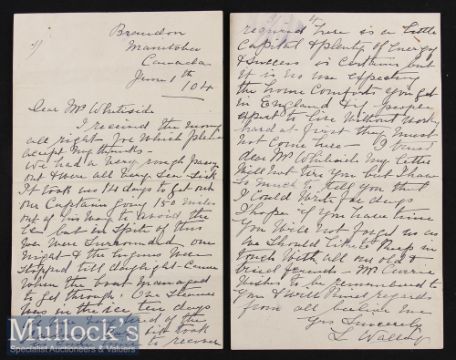 Brandon
Manitoba
Canada
June 1st /04
Dear Mr Whiteside
I received the money
all right for which please
accept my thanks.
We had a very rough passage
out & were all very sea sick
It took us 14 days to get out
our Captain going 150 miles
out of his way to avoid the
ice but in spite of this
we were surrounded one
night & the engines were
stopped till daylight came
when the boat managed
to get through. One steamer
was in the ice ten days
of the
took
to recover
required here is a little
Capital & plenty of Energy
& Success is certain but
it is no use expecting
the home Comforts enjoyed
in England & if people
expect to live without working
hard at first they must
not come here – I trust
dear Mr Whiteside my letter
will not tire you but I have
so much to tell you that
I could write for days
I hope if you have time
you will not forget us as
we should like to keep in
touch with all our old &
kind friends – Mr
wishes to be remembered to
you & with kind regards
from all believe me
Yrs Sincerely
Mullock's
Specialist Auctioneers & Valuers